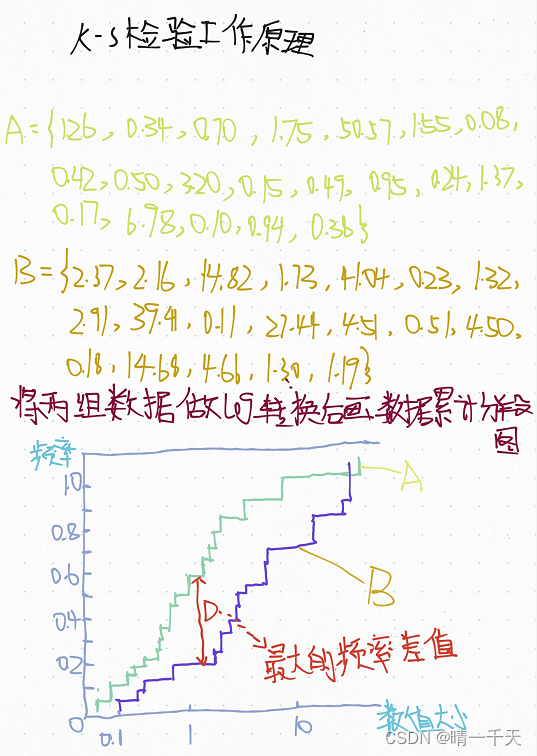 K-S检验工作原理
A={126, 0.34, 0.70, 1.75, 50.57, 1.55, 0.08,
0.42, 0.50, 320, 0.15, 0.49, 0.95, 0.24, 1.37,
0.17, 6.98, 0.10, 0.94, 0.38}
B={2.37, 2.16, 14.82, 1.73, 41.04, 0.23, 1.32,
2.91, 39.41, 0.11, 27.44, 4.51, 0.51, 4.50,
0.18, 14.68, 4.66, 1.30, 1.19}
将两组数据做log转换后画数据累计分段
图
频率
1.0
A
0.8
0.6
B
D
0.4
最大的频率差值
0.2
0
0.1 1 10
数值大小
CSDN @晴一千天